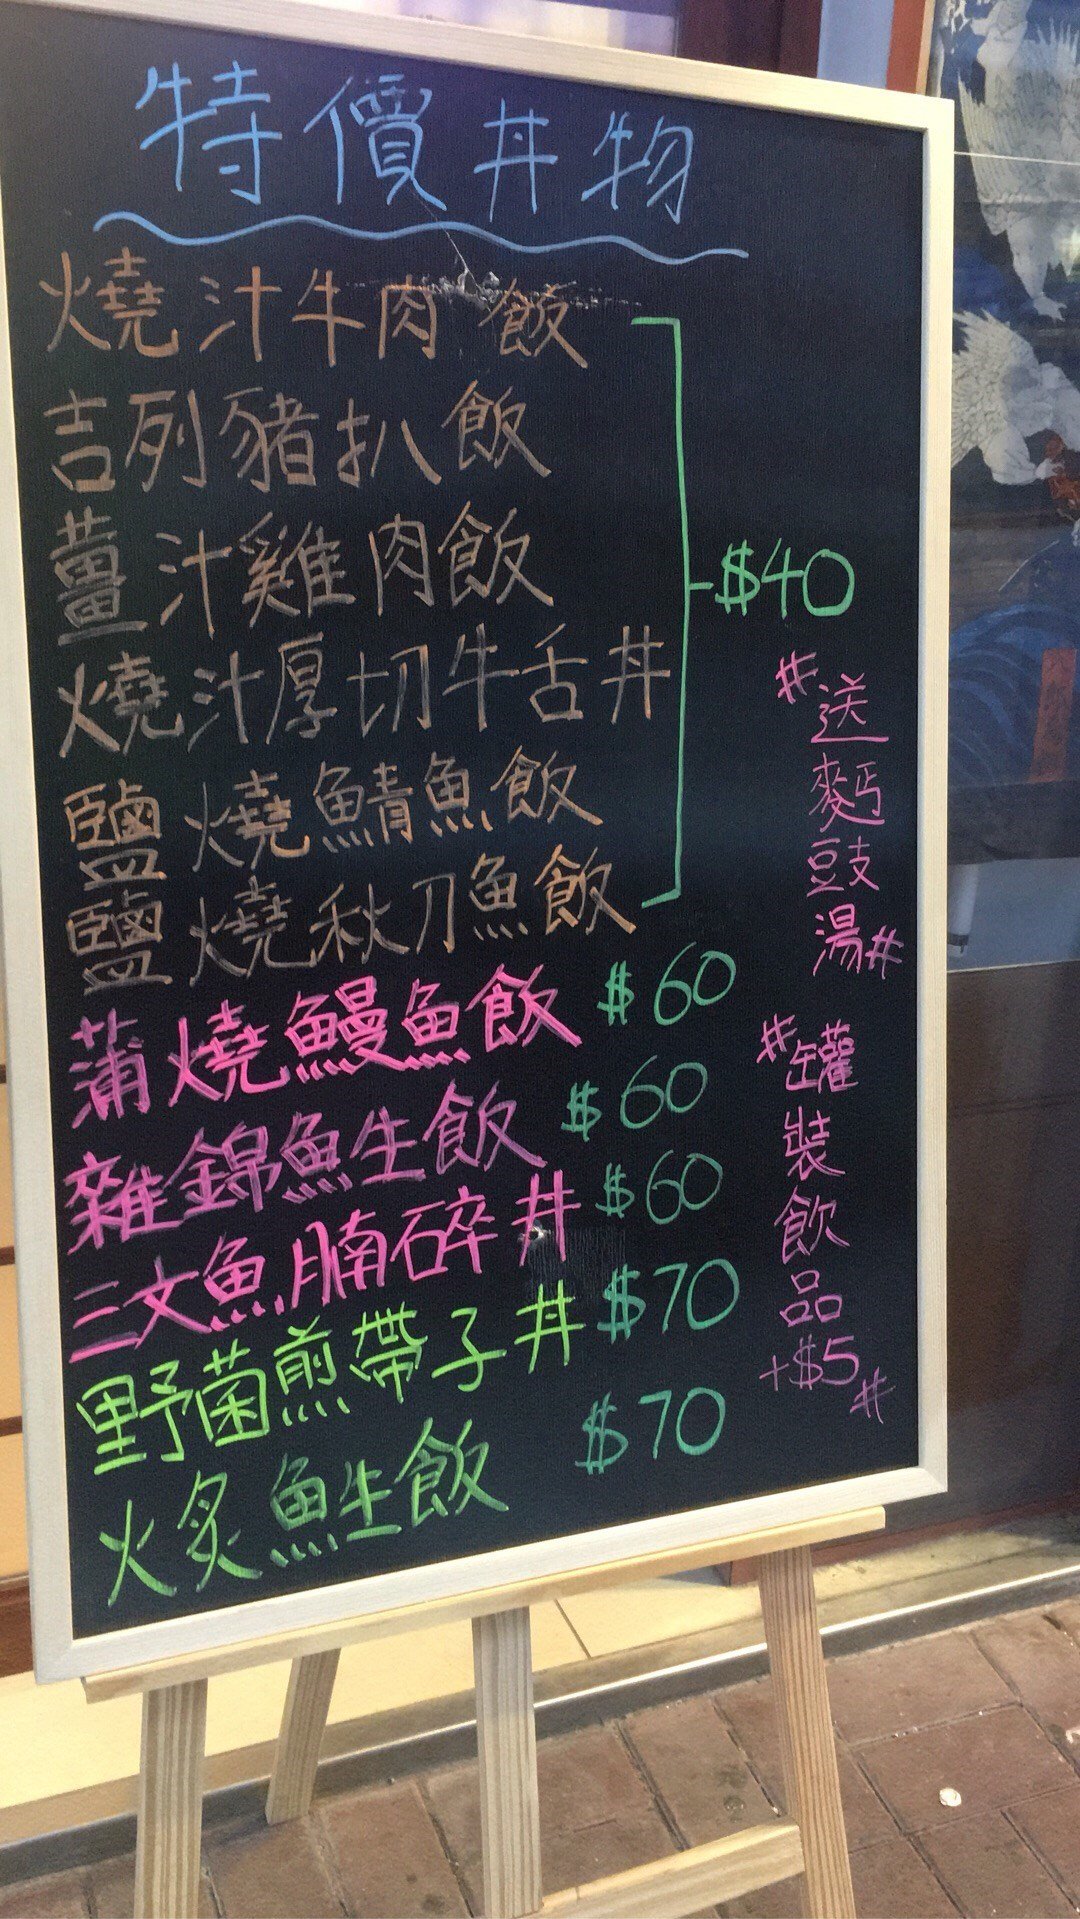 特價丼物
燒汁牛肉飯
吉列豬扒飯
薑汁雞肉飯
燒汁厚切牛舌丼
鹽燒鯖魚飯
鹽燒秋刀魚飯
-$40
蒲燒鰻魚飯 $60
雜錦魚生飯 $60
三文魚腩碎丼 $60
野菌煎帶子丼 $70
火炙魚生飯 $70
#送麥丐豆豉湯#
#罐裝飲品+$5#